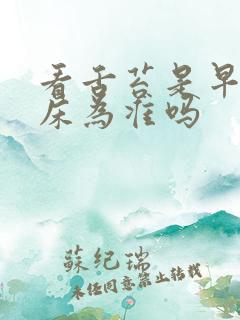 看舌苔是早
床为准吗
蘇纪瑞
未经同意禁止转载